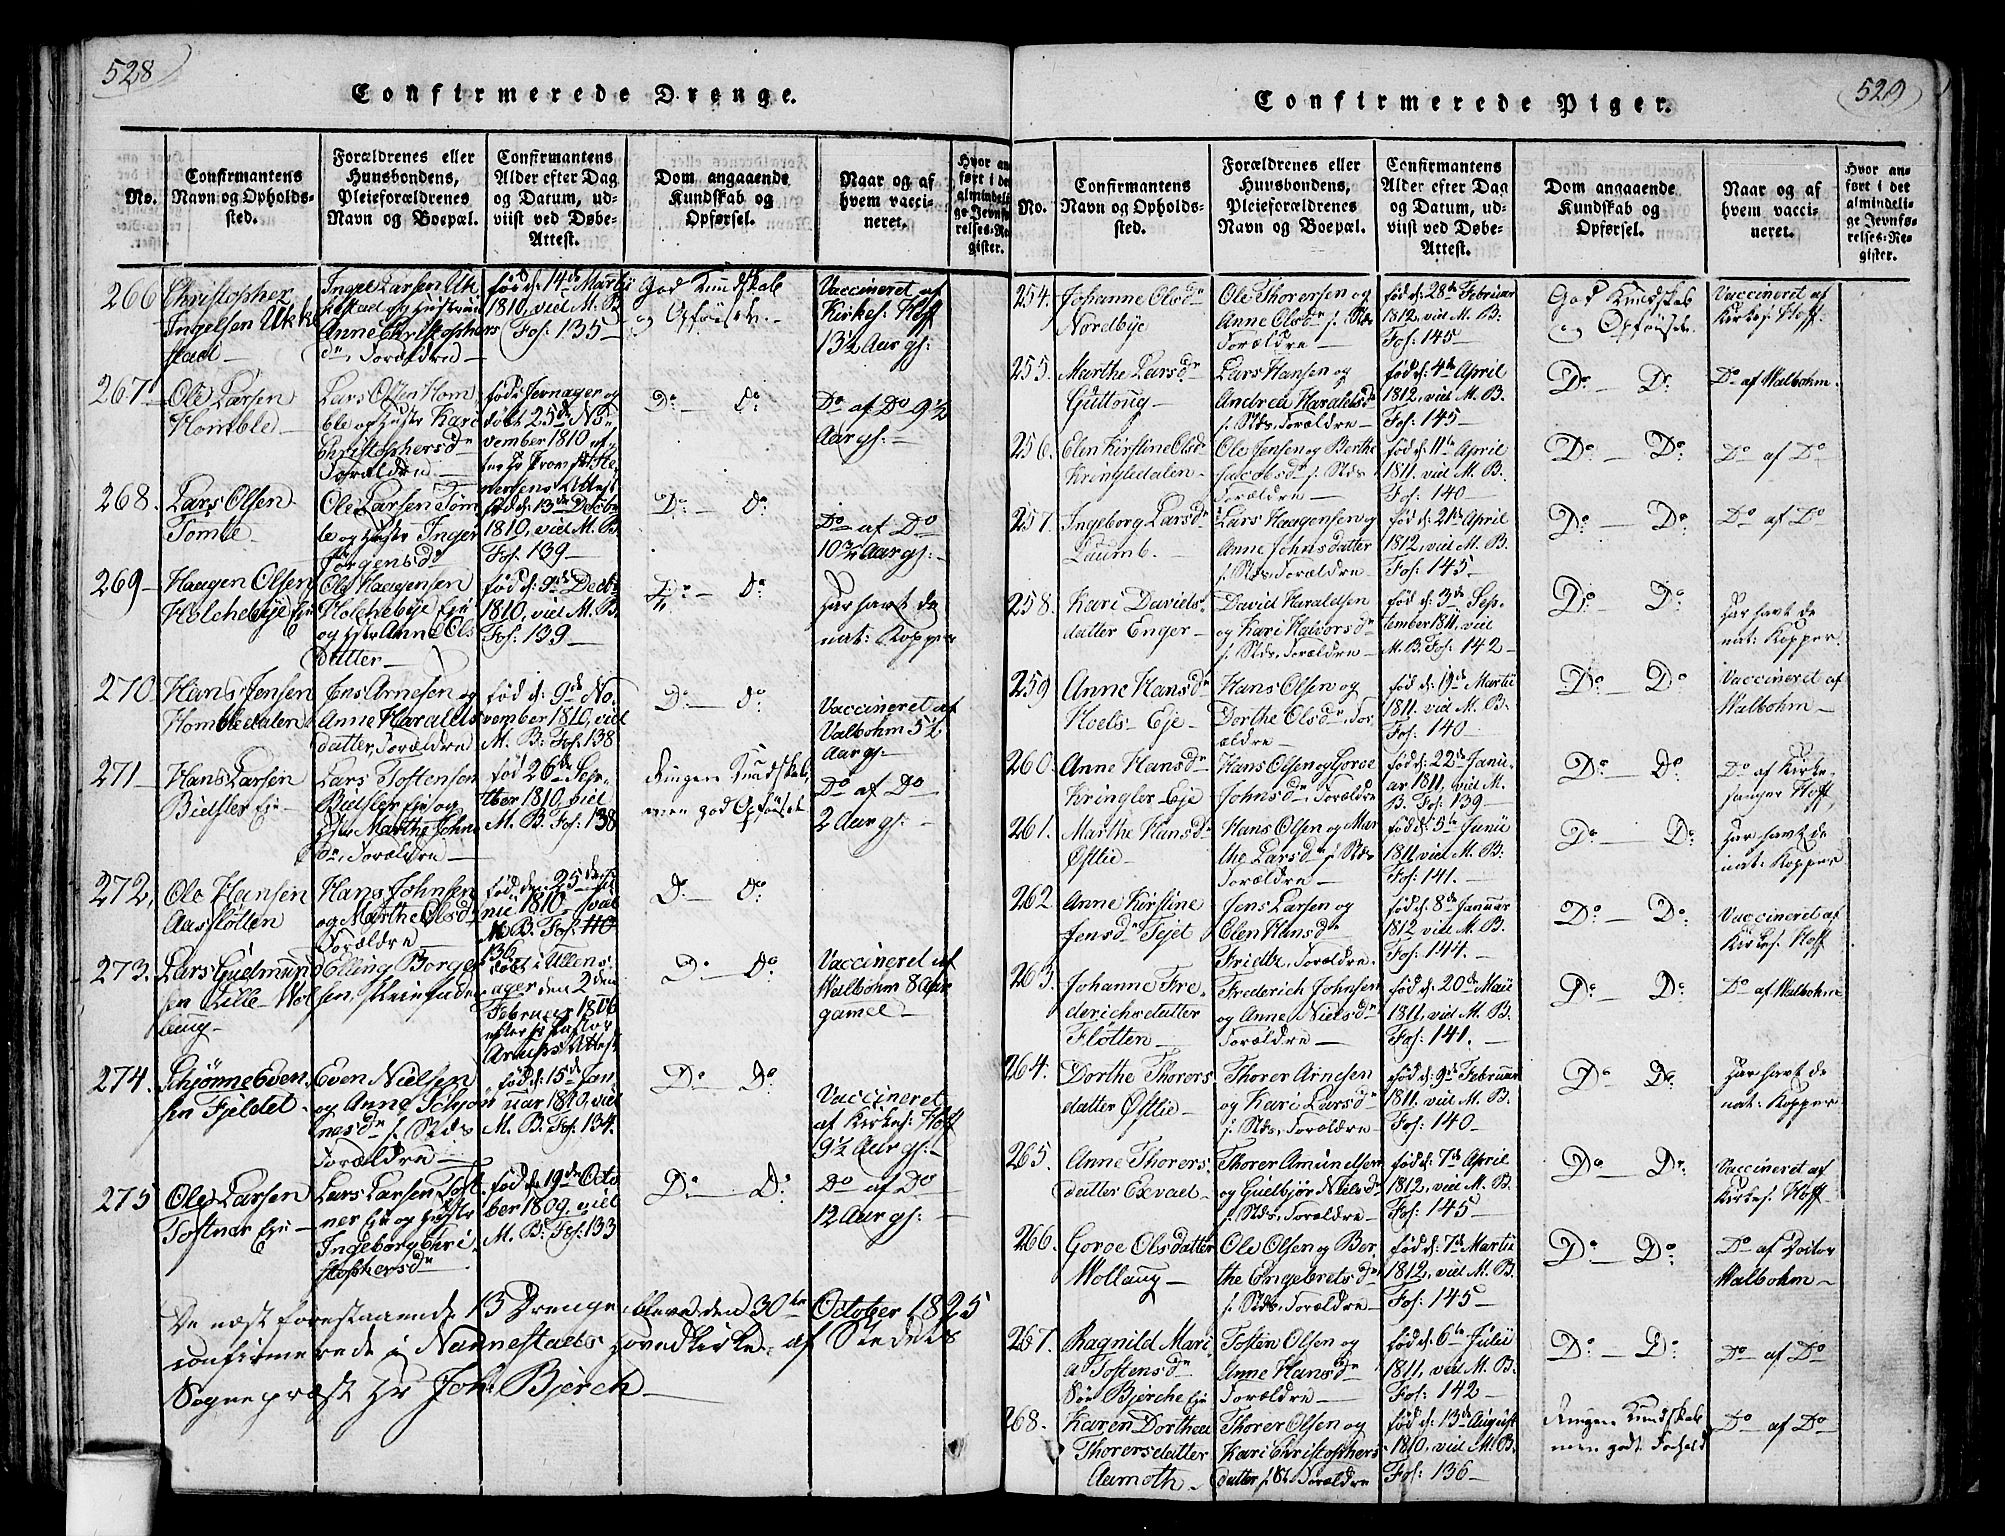 528
Confirmerede Drenge.
No.
Confirmantens
Navn og Opholds-
sted.
Forældrenes eller
Huusbondens,
Pleieforældrenes
Navn og Boepæl.
Confirmantens
Alder efter Dag
og Datum, ud-
viist ved Døbe-
Attest.
Dom angaaende
Kundskab og
Opførsel.
Naar og af
hvem vacci-
neret.
Hvor an-
ført i det
almindeli-
ge Jevnfø-
relses-Re-
gister.
266
Christopher
Ingelsen Ukke
stad —
Ingel Larsen Uk
kestad og Hustrue
Anne Christophers
dn, Forældre —
fød d: 14de Martii
1810, viid M. B.
Fol: 135 —
God Kundskab
og Opførsel. —
Vaccineret af
Kirkes: Hoff
13½ Aar gl:
267
Ole Larsen
Homble —
Lars Olsen Hom
ble og Hustr Kari
Christophersdn
Forældre —
fød i Jevnager og
døbt 25de No
vember 1810 ef
ter Hr Provst
Attest
Do — Do
Do af Do 9½
Aar gl: —
268.
Lars Olsen
Tømte —
Ole Larsen Tøm
te og Hustr Inger
Jørgensdn
fød d: 13de Decbr
1810, viid M. B.
Fol: 139 —
Do — Do
Do af Do
10¾ Aar gl: —
269 —
Haagen Olsen
Holchebye Eje
Ole Haagensen
Holchebye Eje
og Hstr Anne Ols
datter —
fød d: 9de Decbr
1810, viid M. B.
Fol: 139 —
Do — Do
Har havt de
nat: Kopper
270
Hans Jensen
Hombledalen
Jens Arnesen og
Anne Haralds
datter, Forældre
fød d: 9de No
vember 1810, viid
M. B: Fol: 138
Do — Do
Vaccineret af
Valbohm 5½
Aar gl: —
271 —
Hans Larsen
Bielsler Eje —
Lars Tostensen
Bielsler Eje og
Hstr Marthe Johns
dn, Forældre —
fød 26de Sep-
tber 1810, viid
M. B. Fol: 138
Ringere Kundskab,
men god Opførsel
Do af Do
2 Aar gl: —
272,
Ole Hansen
Aasfløtten
Hans Johnsen
og Marthe Olsd
Forældre —
fød d: 25de Ju
nii 1810, viid
M. B. Fol: 110
136
Do — Do
273.
Lars Gudmund
sen Lille Wol
laug —
Elling Borge
sen,
døbt i Ullens-
ager den 2den
Februar 1806
efter Hr Pastor
Arups Attest
Do — Do
Vaccineret af
Walbohm 8 Aar
gamel —
274.
Schjønne Even
sen Fjeldet —
Even Nielsen
og Anne Schjøn
nesdn s. Steds
Forældre —
fød d: 15de Jan
uar 1810, viid
M. B. Fol: 134.
Do — Do
Vaccineret
af Kirkes: Hoff
9½ Aar gl: —
275
Ole Larsen
Tostnær Eje —
Lars Larsen Tost
ner Eje og Hustr
Ingeborg Chri
stophersdn
fød d: 19de Octo
ber 1809, viid
M. B: Fol: 133
Do — Do
Do af Do
12 Aar gl: —
De næst forestaaende 13 Drenge bleve den 30te October 1825
confirmerede i Nannestads Hovedkirke af Stedets
Sognepræst Hr Joh: Bjerch —
529
Confirmerede Piger.
No.
Confirmantens
Navn og Opholds-
sted.
Forældrenes eller
Huusbondens,
Pleieforældrenes
Navn og Boepæl.
Confirmantens
Alder efter Dag
og Datum, ud-
viist ved Døbe-
Attest.
Dom angaaende
Kundskab og
Opførsel.
Naar og af
hvem vacci-
neret.
Hvor an-
ført i det
almindeli-
ge Jevnfø-
relses-Re-
gister.
254.
Johanne Olsdn
Nordbye
Ole Thorersen og
Anne Olsdn s. Steds
Forældre —
fød d: 28de Februar
1812, viid M. B:
Fol: 145 —
God Kundskab
og Opførsel
Vaccineret af
Kirkes: Hoff:
255.
Marthe Larsdn
Guttong —
Lars Hansen og
Andrea Haraldsdn
s. Stds, Forældre —
fød d: 4de April
1812, viid M. B.
Fol: 145 —
Do — Do
Do af Walbohm.
256.
Elen Kirstine Olsdn
Kringledalen
Ole Jensen og Berthe
Jacobsdn s. Stds
Forældre —
fød d: 11te April
1811, viid M. B.
Fol: 140 —
Do — Do
Do af Do
257.
Ingeborg Larsdn
Laumb. —
Lars Haagensen og
Anne Johnsdatter
s. Stds, Forældre —
fød d: 21de April
1812, viid M. B.
Fol: 145 —
Do — Do
Do af Do
258.
Kari Davids
datter Enger —
David Haraldsen
og Kari Halvorsdn
s. Stds, Forældre —
fød d: 3de Sep-
tember 1811, viid
M. B. Fol: 142 —
Do — Do
Har havt de
nat: Kopper.
259
Anne Hansdn
Hoels - Eje —
Hans Olsen og
Dorthe Olsdn, For
ældre —
fød d: 19de Martii
1811, viid M. B.
Fol: 140
Do — Do
Vaccineret af
Walbohm —
260.
Anne Hansdn
Kringler - Eje
Hans Olsen og Goroe
Johnsdn, Forældre
fød d: 22de Janu-
ar 1811, viid M.
B. Fol: 139 —
Do — Do
Do af Kirke-
sanger Hoff,
261.
Marthe Hansdn
Østlie —
Hans Olsen og Mar
the Larsdn s. Stds
Forældre —
fød d: 5te Junii
1811, viid M. B:
Fol: 141. —
Do — Do
Har havt de
nat: Kopper
262.
Anne Kirstine
Jensdn Tejet
Jens Larsen og
Elen Hansdn
Forældre.
fød d: 8de Januar
1812 viid M. B.
Fol: 144.
Do — Do
Vaccineret af
Kirkes. Hoff
263.
Johanne Fre-
derichsdatter
Fløtten —
Frederich Johnsen
og Anne Nielsdn
Forældre —
fød d: 20de Maii
1811, viid M. B.
Fol: 141. —
Do — Do
Do af Walbohm
264.
Dorthe Thorers
datter Østlie —
Thorer Arnesen
og Kari Larsdn
s. Stds, Forældre —
fød d: 9de Februar
1811. viid M. B.
Fol: 140 —
Do — Do
Har havt de
nat: Kopper
265.
Anne Thorers-
datter Exvael —
Thorer Amundsen
og Guldbjør Nielsdn
s. Stds, Forældre —
fød d: 7de April
1812, viid M. B.
Fol: 145 —
Do — Do
Vaccineret af
Kirkes. Hoff
266.
Goroe Olsdatter
Wollaug —
Ole Olsen og Ber-
the Engebretsdn
s. Stds, Forældre —
fød d: 7de Martii
1812, viid M. B.
Fol: 145 —
Do — Do
Do af Doctor
Walbohm —
267.
Ragnild Mari-
a Tostensdn
Søe Bjerche Eje
Tosten Olsen og
Anne Hansdn
Forældre —
fød d: 6te Julii
1811, viid M. B.
Fol: 142 —
Do — Do
Do af Do
268.
Karen Dorthea
Thorersdatter
Aamoth —
Thorer Olsen og
Kari Christophers
datter s. St. Forældre
fød d: 13de August
1810, viid M. B.
Fol: 136 —
Ringere Kundskab
men godt Forhold
Do af Do